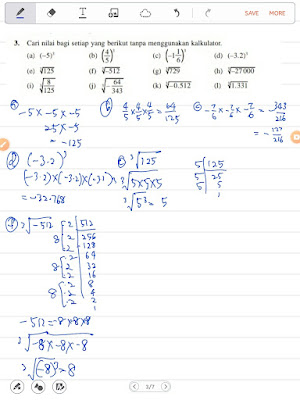 SAVE MORE
3. Cari nilai bagi setiap yang berikut tanpa menggunakan kalkulator.
(a) (–5)³ (b) (4/5)³ (c) (–1 1/6)³ (d) (–3.2)³
(e) ∛125 (f) ∛–512 (g) ∛729 (h) ∛–27 000
(i) ∛(8/125) (j) ∛(–64/343) (k) ∛–0.512 (l) ∛1.331
-5 x -5 x -5
25 x -5
= -125
4/5 x 4/5 x 4/5 = 64/125
-7/6 x -7/6 x -7/6 = -343/216
(-3.2)³
(-3.2) x (-3.2) x (-3.2)
= -32.768
∛125
∛5x5x5
∛5³ = 5
5 125
5 25
5 5
1
∛-512
2 512
8 2 256
2 128
2 64
8 2 32
2 16
2 8
8 2 4
2 2
1
-512 = -8 x -8 x -8
∛-8 x -8 x -8
∛(-8)³ = 8
3/7